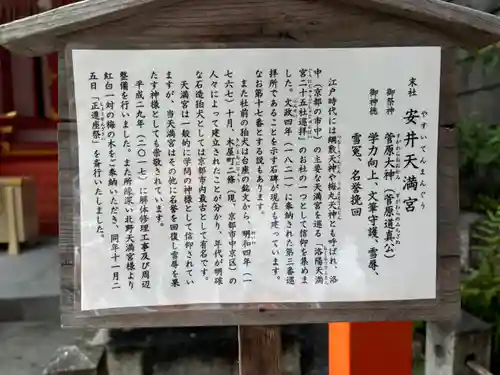 末社 安井天満宮
やすいてんまんぐう
御祭神 菅原大神(菅原道真公)
すがわらおおかみ すがわらのみちざねこう
御神徳 学力向上、文筆守護、雪辱、
雪冤、名誉挽回
江戸時代には綱敷天神や梅丸天神とも呼ばれ、洛
中(京都の市中)の主要な天満宮を巡る「洛陽天満
宮二十五社巡拝」のお社の一つとして信仰を集めま
した。文政四年(一八二一)に奉納された第三番巡
拝所であることを示す石碑が現在も建っています。
なお第十七番とする説もあります。
また社前の狛犬は台座の銘文から、明和四年(一
七六七)十月、木屋町二條(現、京都市中京区)の
人々によって建立されたことが分かり、年代が明確
な石造狛犬としては京都市内最古として有名です。
天満宮は一般的に学問の神様として信仰されてい
ますが、当天満宮はその他に名誉を回復し雪辱を果
たす神様としても崇敬されています。
平成二九年(二〇一七)に解体修理工事及び周辺
整備を行いました。また所縁深い北野天満宮様より
紅白一対の梅の木をご奉納いただき、同年十一月二
五日「正遷座祭」を斎行いたしました。